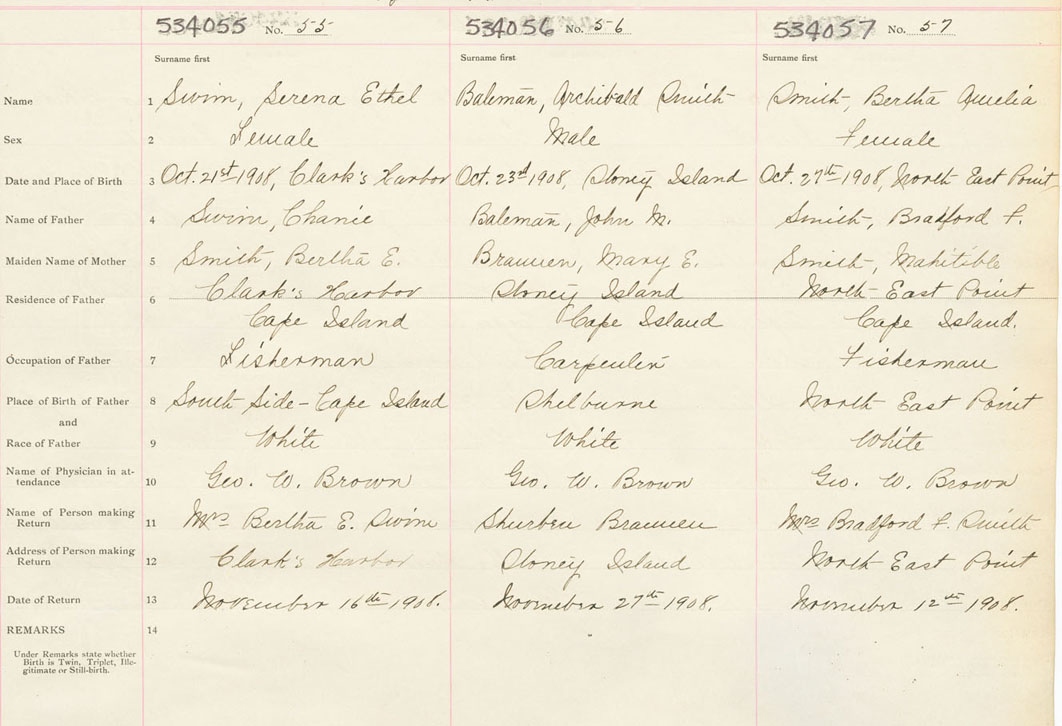 534055 No. 55 534056 No. 56 534057 No. 57
Surname first Surname first Surname first
Name 1 Swim, Serena Ethel Bateman, Archibald Smith Smith, Bertha Amelia
Sex 2 Female Male Female
Date and Place of Birth 3 Oct. 21st 1908, Clark's Harbor Oct. 23rd 1908, Stoney Island Oct. 27th 1908, North East Point
Name of Father 4 Swim, Chanie Bateman, John M. Smith, Bradford F.
Maiden Name of Mother 5 Smith, Bertha E. Brannen, Mary E. Smith, Mahitible
Residence of Father 6 Clark's Harbor Stoney Island North East Point
Cape Island Cape Island Cape Island.
Occupation of Father 7 Fisherman Carpenter Fisherman
Place of Birth of Father 8 South Side - Cape Island Shelburne North East Point
and
Race of Father 9 White White White
Name of Physician in at-
tendance 10 Geo. W. Brown Geo. W. Brown Geo. W. Brown
Name of Person making
Return 11 Mrs Bertha E. Swim Brannen Mrs Bradford F. Smith
Address of Person making
Return 12 Clark's Harbor Stoney Island North East Point
Date of Return 13 November 16th 1908. November 27th 1908. November 12th 1908.
REMARKS 14
Under Remarks state whether
Birth is Twin, Triplet, Ille-
gitimate or Still-birth.